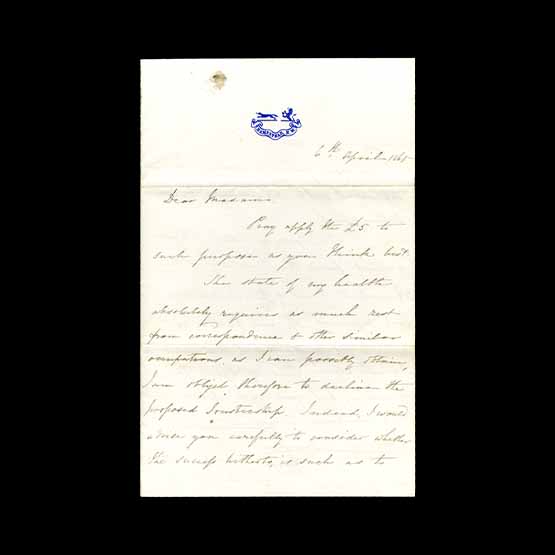 6th April 186
Dear Madam
Pray apply the £5 to
such purposes as you think best.
The state of my health
absolutely requires as much rest
from correspondence & other similar
occupations, as I can possibly obtain,
I am obliged therefore to decline the
proposed Trusteeship. Indeed, I would
advise you carefully to consider whether
the success hitherto, is such as to